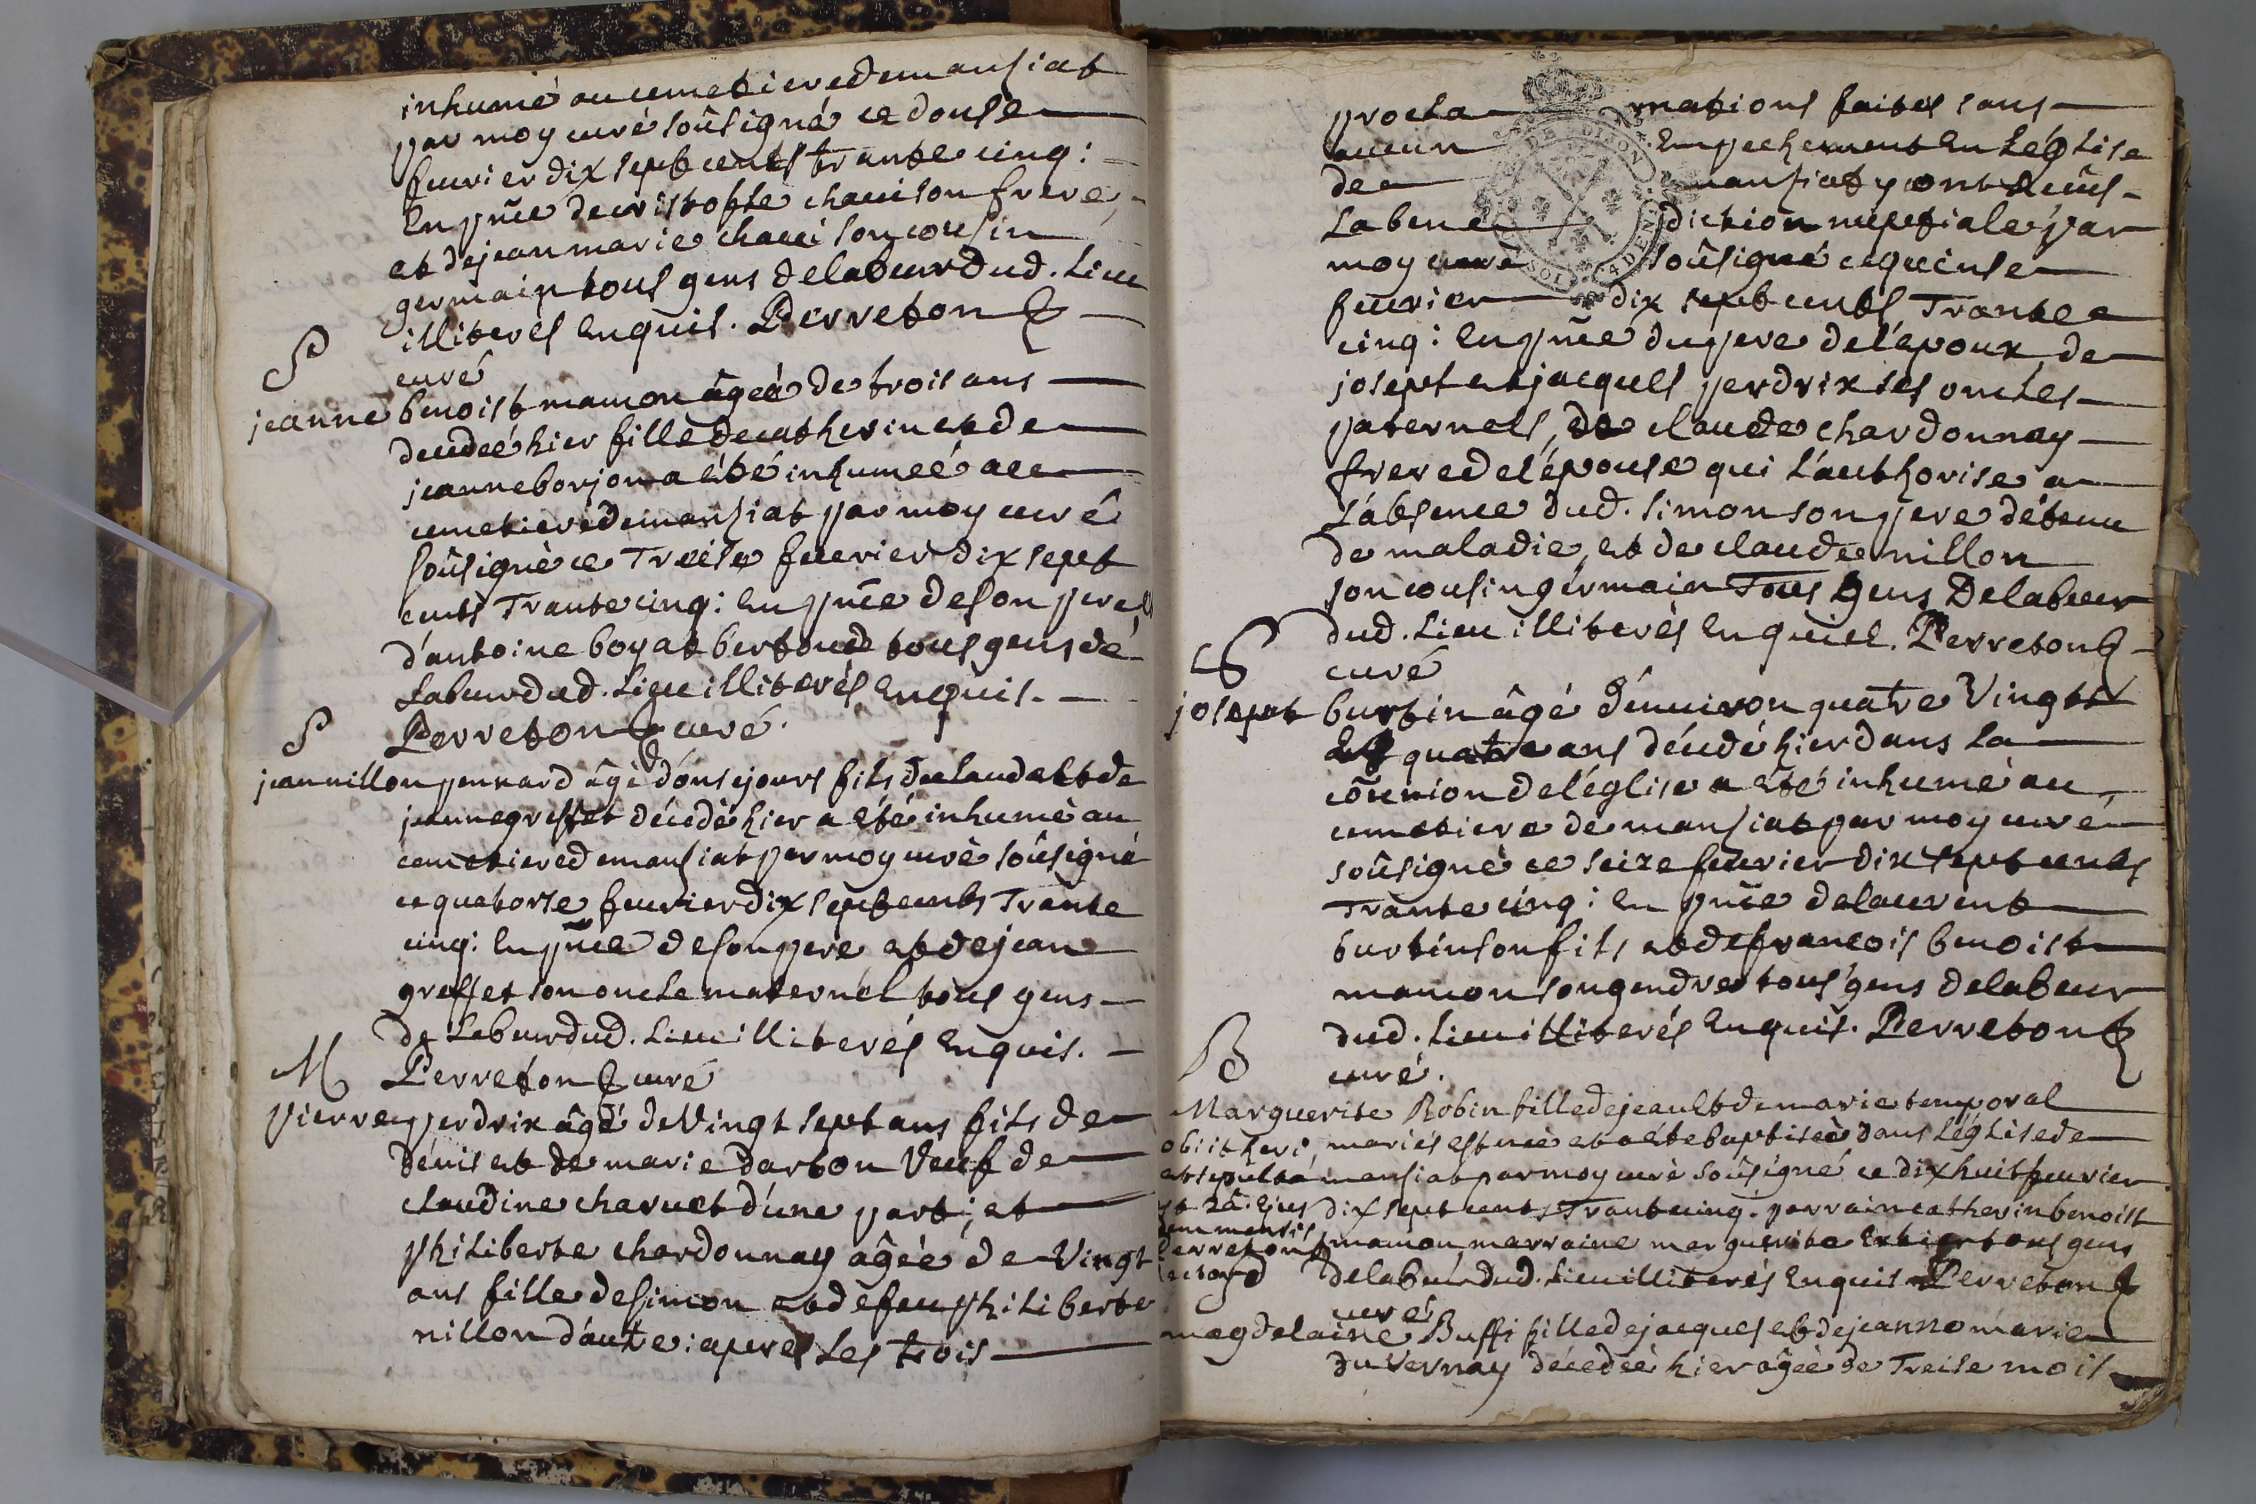 inhumé au cemetiere de mansiat
par moy curé soûsigné ce donse
feuvrier dix sept cents trante cinq :
En pñce de cristofle chacui son frere,
et de jean marie chacui son cousin
germain tous gens de labeur dud. Lieu
illiterés Enquis. Perreton
curé
S
jeanne benoist mamon âgeé de trois ans
decedeé hier fille de catherin et de
jeanne borjon a été inhumeé au
cemetiere de mansiat par moy curé
soûsigné ce Treise feuvrier dix sept
cents Trante cinq : En pñce de son pere,
d'antoine boyat bertoud tous gens de
Labeur dud. Lieu illiterés Enquis.
Perreton curé.
S
jean nillon pennard âgé d'onse jours fils de claude et de
jeanne greffet décedé hier a été inhumé au
cemetiere de mansiat par moy curé soûsigné
ce quatorse feuvrier dix sept cents Trante
cinq : En pñce de son pere et de jean
greffet son oncle maternel tous gens
de Labeur dud. Lieu illiterés Enquis.
Perreton curé
M
pierre perdrix âgé de Vingt sept ans fils de
denis et de marie darbon Veuf de
claudine charvet d'une part ; et
philiberte chardonnay âgée de Vingt
ans fille de simon et de feu philiberte
nillon d'autre : apres Les trois
procla mations faites sans
aucun Empechement En L'église
de mansiat y ont reçus
La bene diction nuptiale par
moy curé soûsigné ce quinse
feuvrier dix sept cents Trante
cinq : En pñce du pere de l'epoux de
josept et jacques perdrix ses oncles
paternels, de claude chardonnay
frere de l'épouse qui L'authorise a
L'absence dud. simon son pere détenu
de maladie, et de claude nillon
son cousin germain Tous gens De labeur
dud. Lieu illiterés Enquis. Perreton
curé
S
josept burtin âgé d'enuiron quatre Vingts
quatre ans décedé hier dans La
cõmunion de l'église a été inhumé au
cemetiere de mansiat par moy curé
soûsigné ce seize feuvrier dix sept cents
Trante cinq : En pñce de laurent
burtin son fils et de francois benoist
mamon son gendre tous gens de labeur
dud. Lieu illiterés Enquis. Perreton
curé.
B
Marguerite Robin fille de jean et de marie temporal
mariés est née et a été baptiseé dans L'église de
mansiat par moy curé soûsigné ce dix huit feuvrier
dix sept cents Trante cinq. parrain catherin benoist
mamon, marraine marguerite tous gens
de labeur dud. Lieu illiterés Enquis Perreton
curé
obiit heri,
et sepulta
est 2â. Ejus
dem mensis
Perreton
magdelaine Buffi fille de jacques et de jeanne marie
du Vernay décedeé hier âgeé de Treise mois